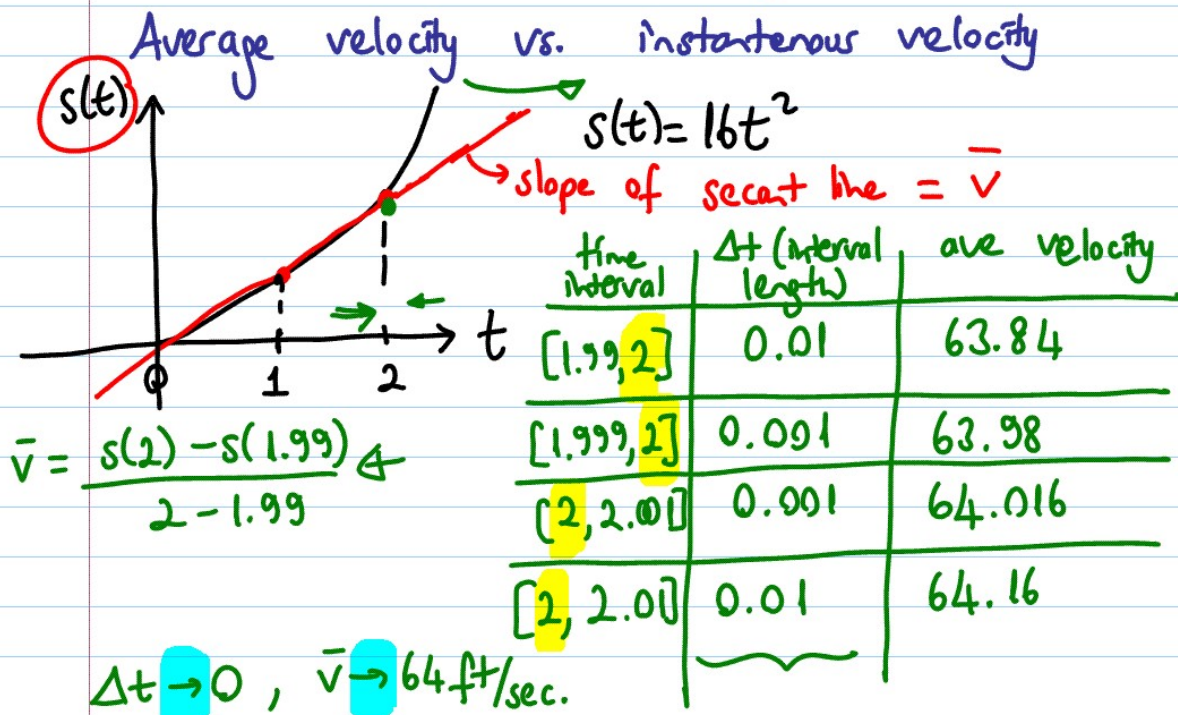 Average velocity vs. instantenous velocity
s(t)
s(t)= 16t²
slope of secant line = v̄
t
0 1 2
time interval | Δt (interval length) | ave velocity
[1.99, 2] | 0.01 | 63.84
[1.999, 2] | 0.001 | 63.98
[2, 2.001] | 0.001 | 64.016
[2, 2.01] | 0.01 | 64.16
v̄ = s(2) - s(1.99)
2 - 1.99
Δt → 0 , v̄ → 64 ft/sec.